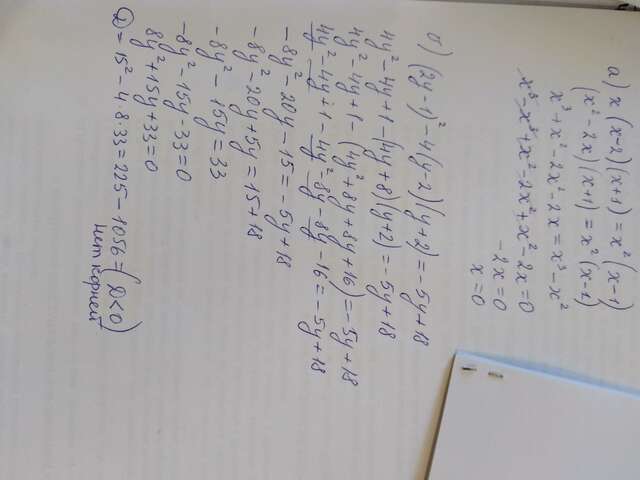 а) x(x-2)(x+1) = x²(x-1)
(x²-2x)(x+1) = x²(x-1)
x³+x²-2x²-2x = x³-x²
x³-x³+x²-2x²+x²-2x=0
-2x=0
x=0
б) (2y-1)²-4(y-2)(y+2) = -5y+18
4y²-4y+1-(4y+8)(y+2) = -5y+18
4y²-4y+1-(4y²+8y+8y+16) = -5y+18
4y²-4y+1-4y²-8y-8y-16 = -5y+18
-8y²-20y-15 = -5y+18
-8y²-20y+5y = 15+18
-8y²-15y = 33
-8y²-15y-33=0
8y²+15y+33=0
D = 15²-4·8·33 = 225-1056 = (D<0)
нет корней